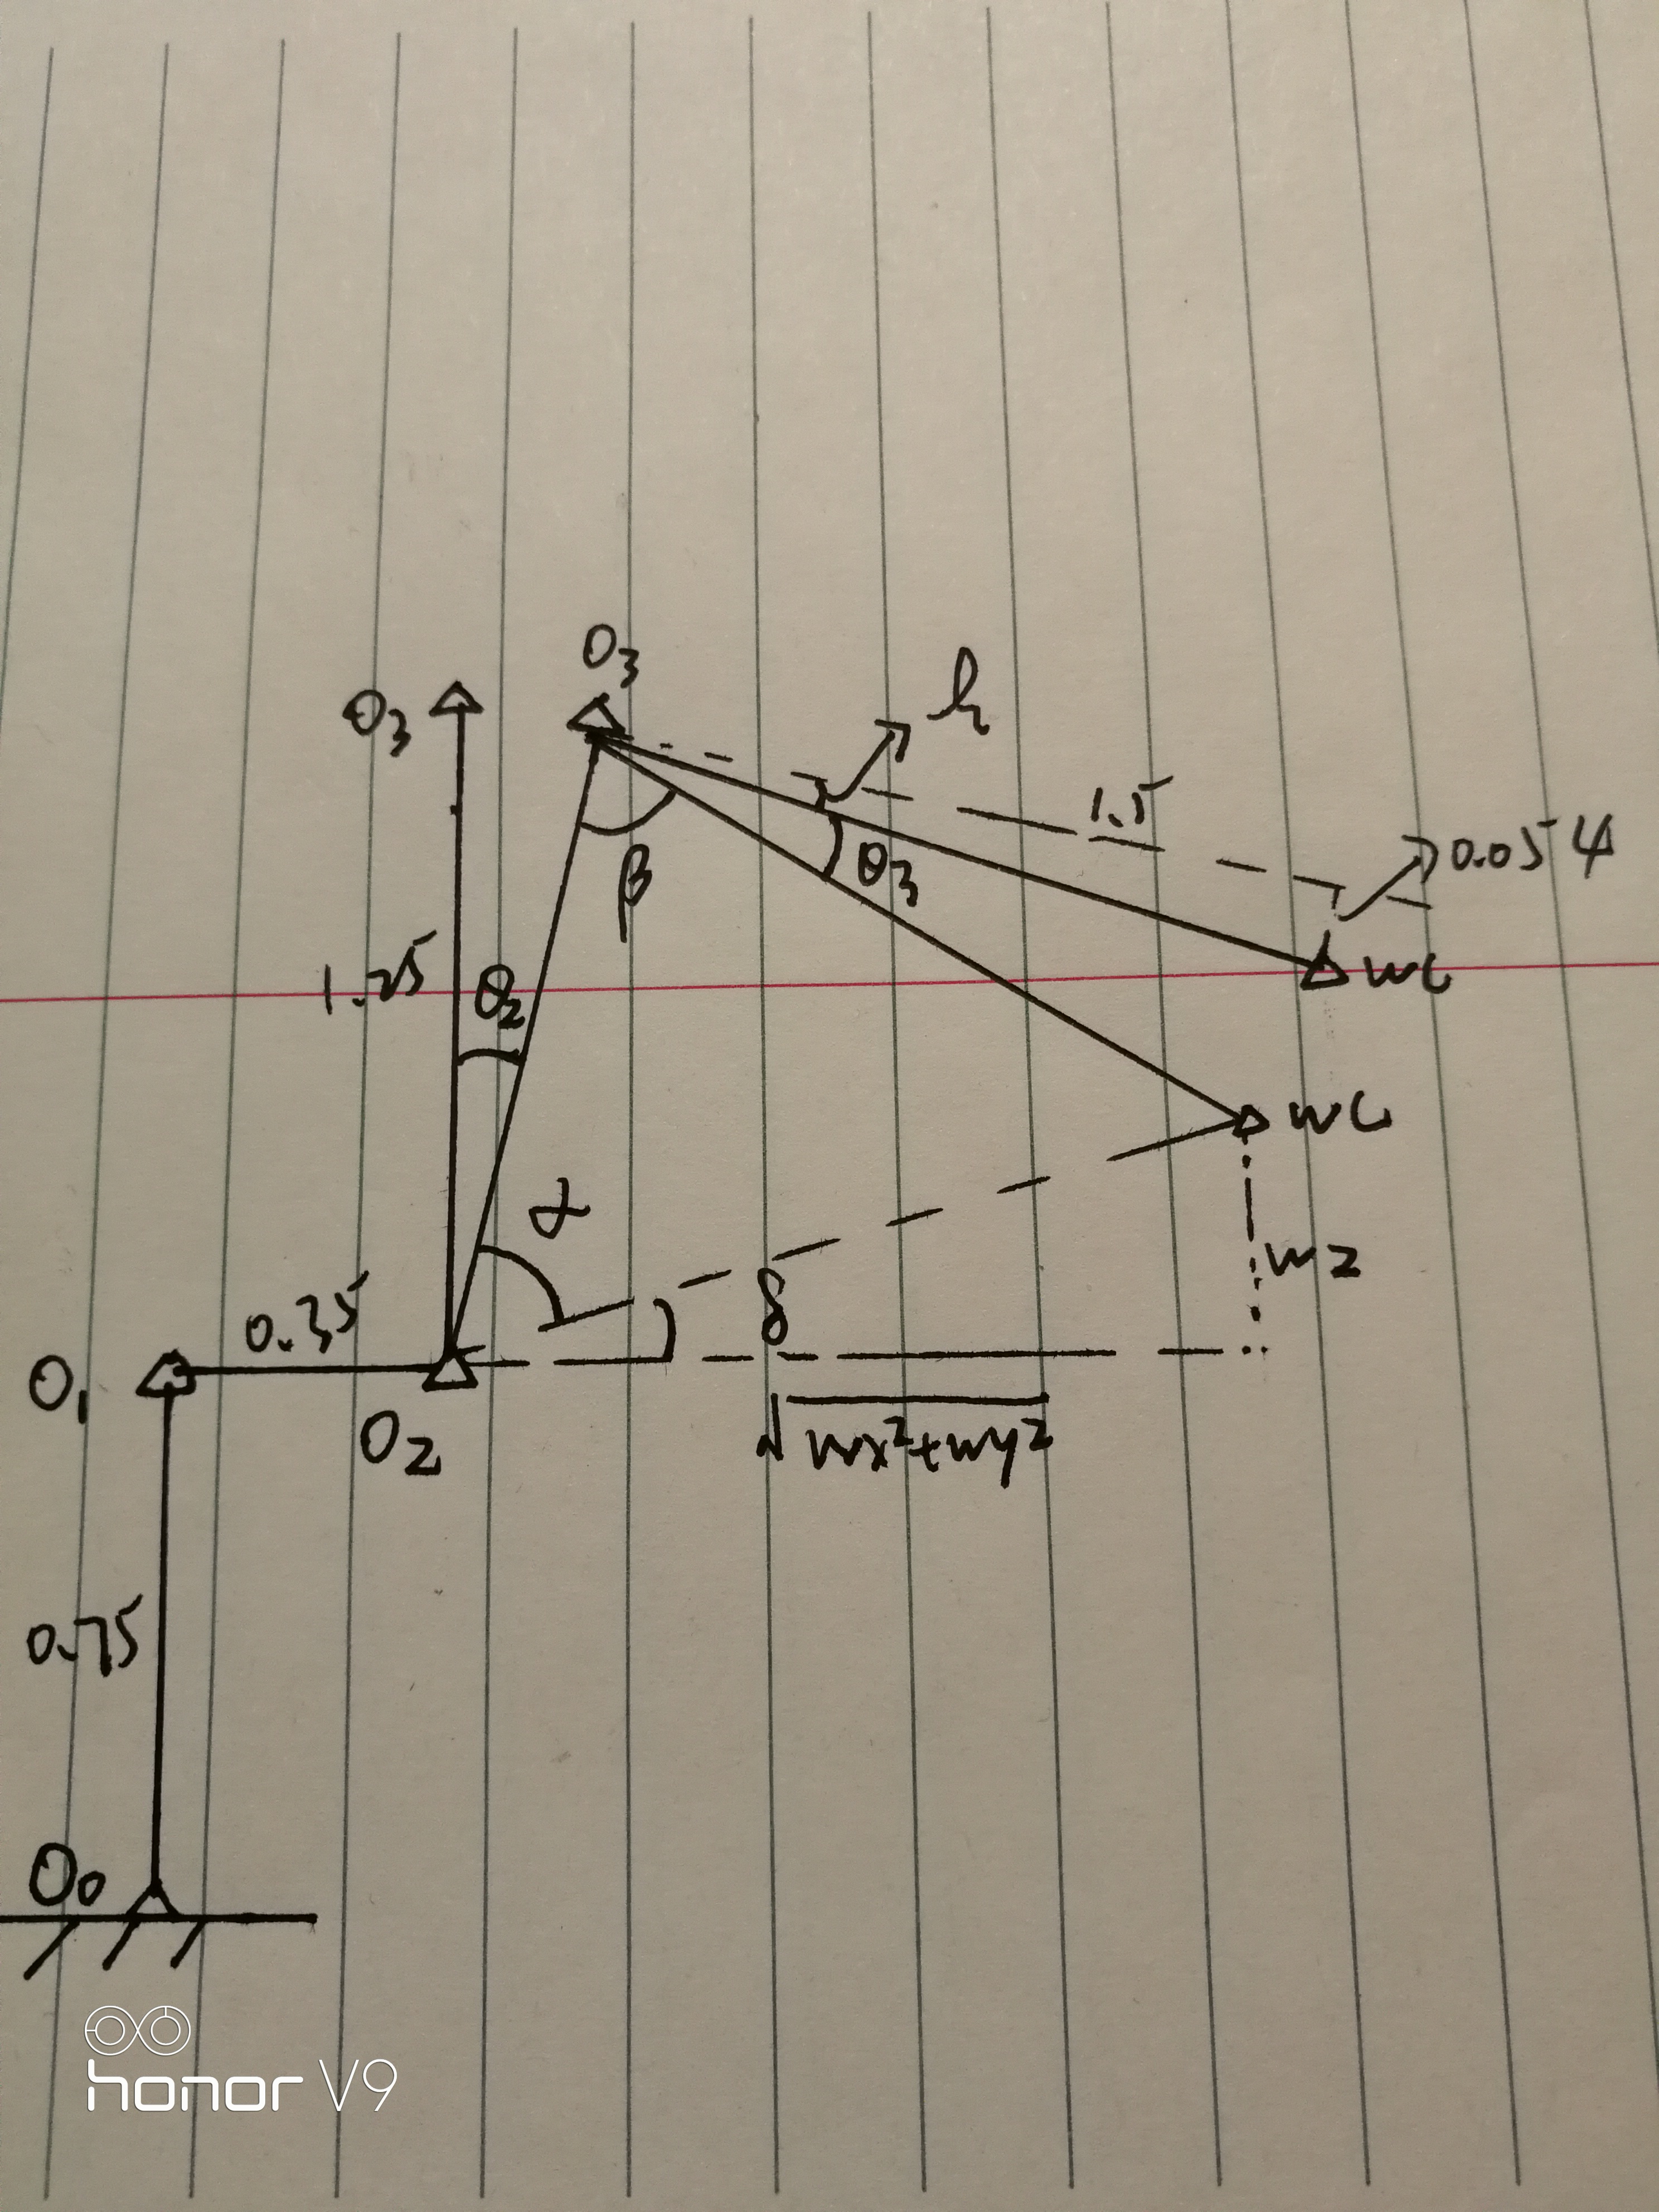 O3
O3
h
1.5
0.054
θ3
β
WC
1.25
θ2
WC
α
WZ
0.35
δ
O1
O2
√wx²+wy²
0.75
O0
honor V9